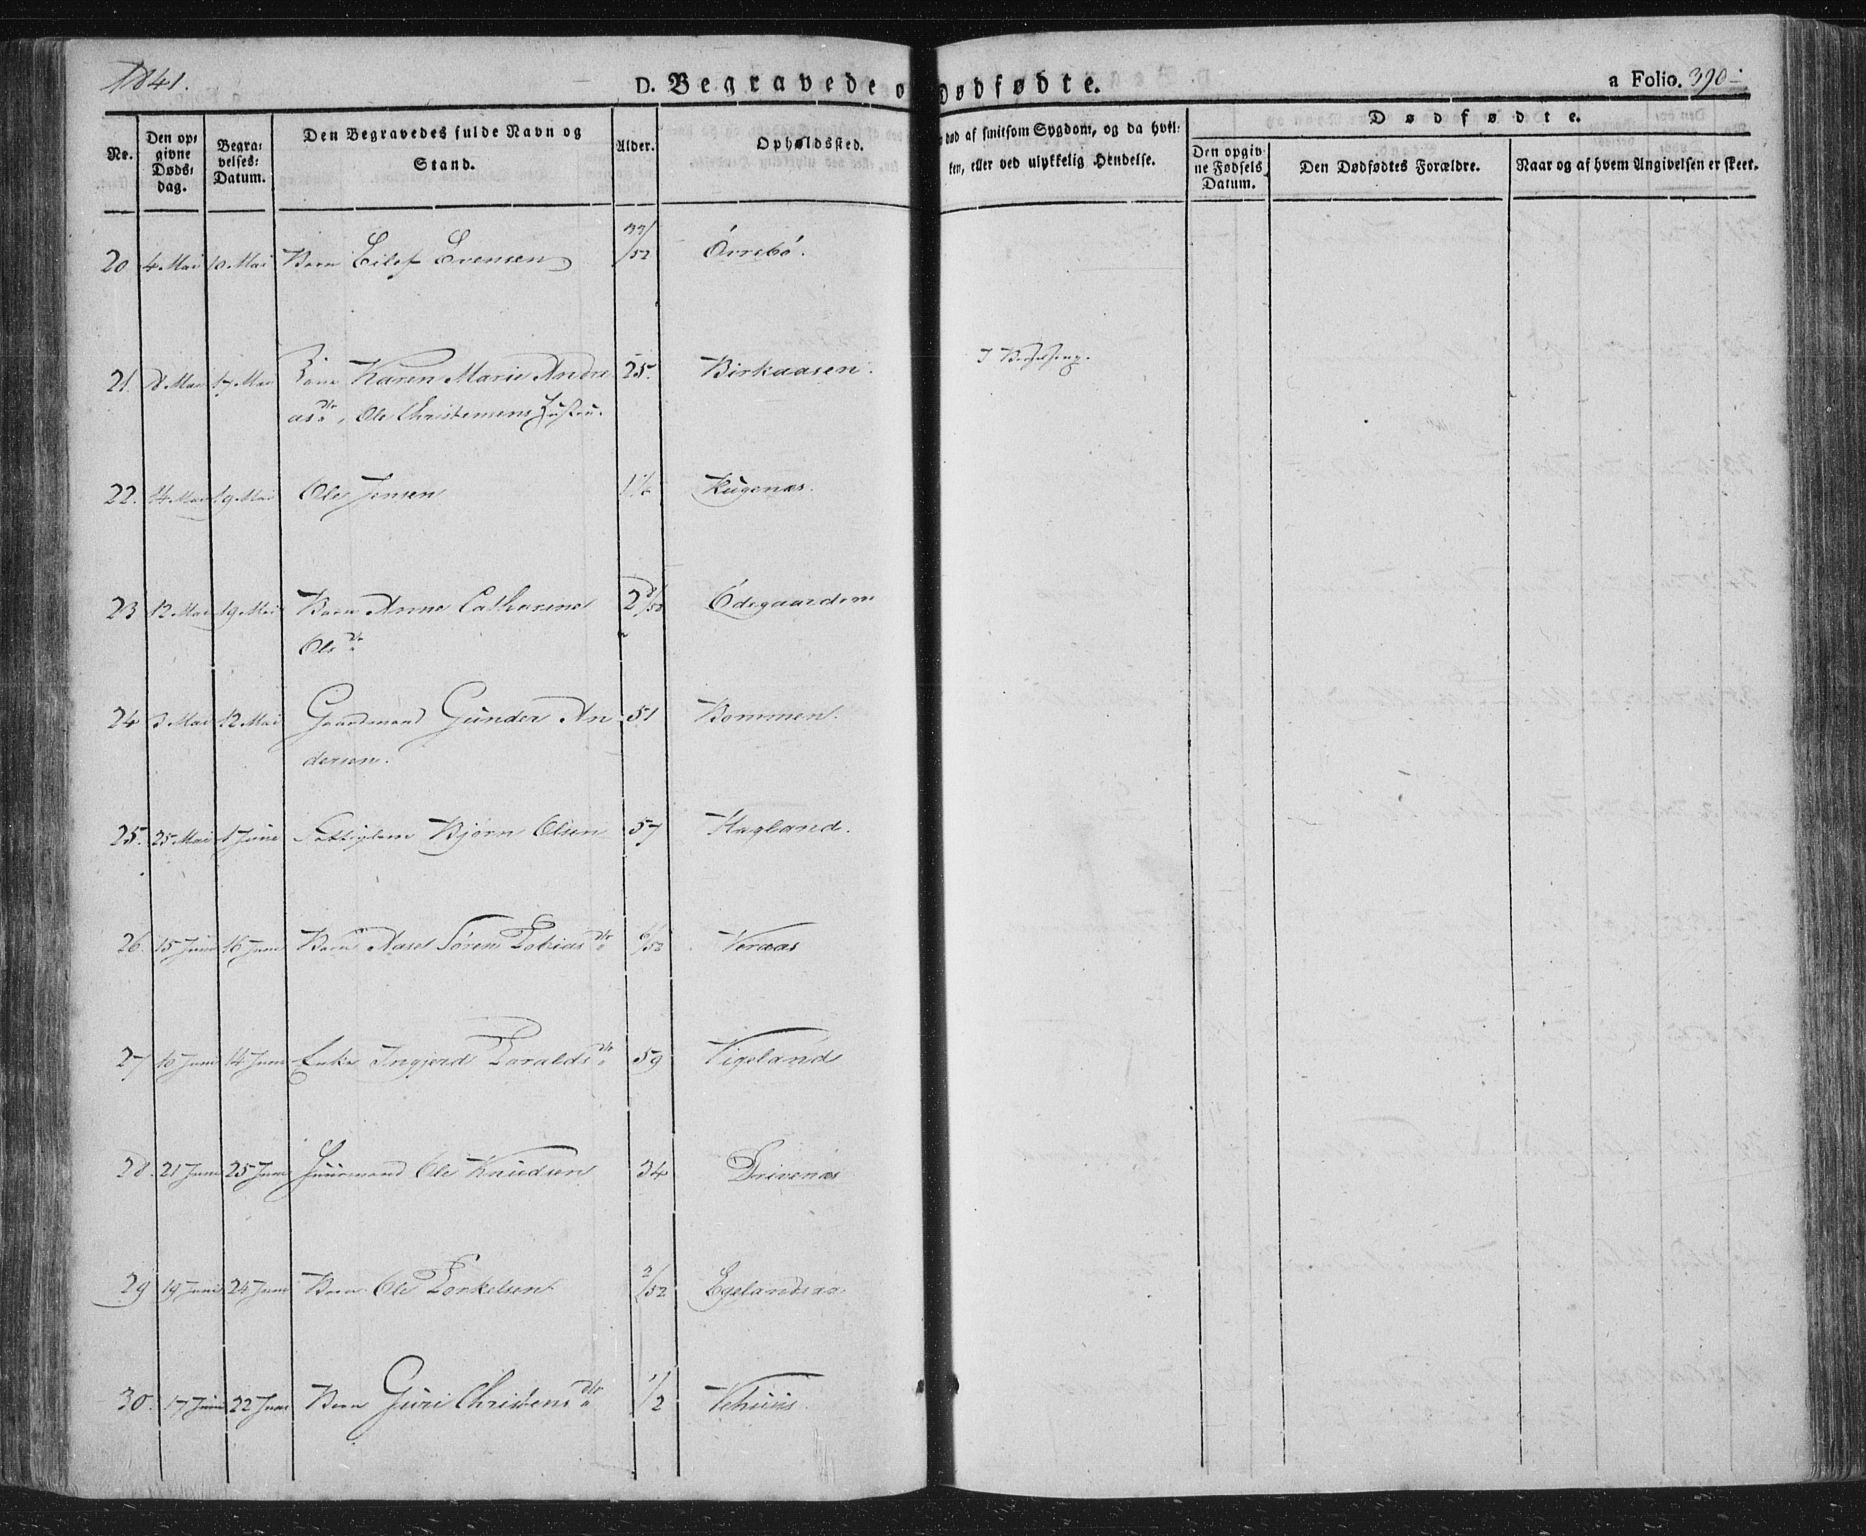 1841.
D. Begravede o
Dødfødte.
a Folio. 390
Nr.
Den op-
givne
Døds-
dag.
Begra-
velses-
Datum.
Den Begravedes fulde Navn og
Stand.
Alder.
Opholdssted.
død af smitsom Sygdom, og da hvil-
ken, eller ved ulykkelig Hendelse.
Dødfødte.
Den opgiv-
ne Fødsels
Datum.
Den Dødfødtes Forældre.
Naar og af hvem Angivelsen er skeet.
20 4 Mai 10 Mai Barn Eilef Evensen /52 Örrebö.
21. 8 Mai 17 Mai Kone Karen Marie Andre 25. Birkaasen. I Barselseng.
as dr, Ole Christensens Hustru.
22. 14 Mai 19 Mai Ole Jensen Kugenæs.
23 12 Mai 19 Mai Barn Anne Catharine 2 8/52 Ödegaarden
Ols dr
24 3 Mai 12 Mai Gaardmand Gunder An 51 Bommen.
dersen.
25. 25 Mai 1 Juni Fattiglem Bjørn Olsen 57 Hagland.
26. 15 Juni 16 Juni Barn Aasel Sören Tobias dr 6/52 Veraas
27 10 Juni 14 Juni Enke Ingjerd Taralds dr 59 Vigeland
28. 21 Juni 25 Juni Huusmand Ole Knudsen 34 Drivenæs
29 19 Juni 24 Juni Barn Ole Torkelsen 2/52 Egelandsaa
30. 17 Juni 22 Juni Barn Guri Christens dr 1/2 Vehuus.